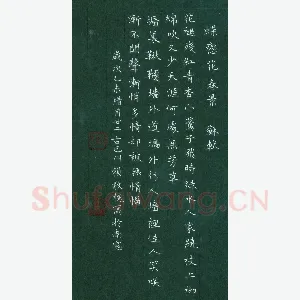 蝶戀花春景 蘇軾
花褪殘紅青杏小燕子飛時綠水人家繞枝上柳
綿吹又少天涯何處無芳草
牆裏鞦韆牆外道牆外行人牆裏佳人笑笑
漸不聞聲漸悄多情卻被無情惱
歲次乙未腊月廿三
Shufawang.CN